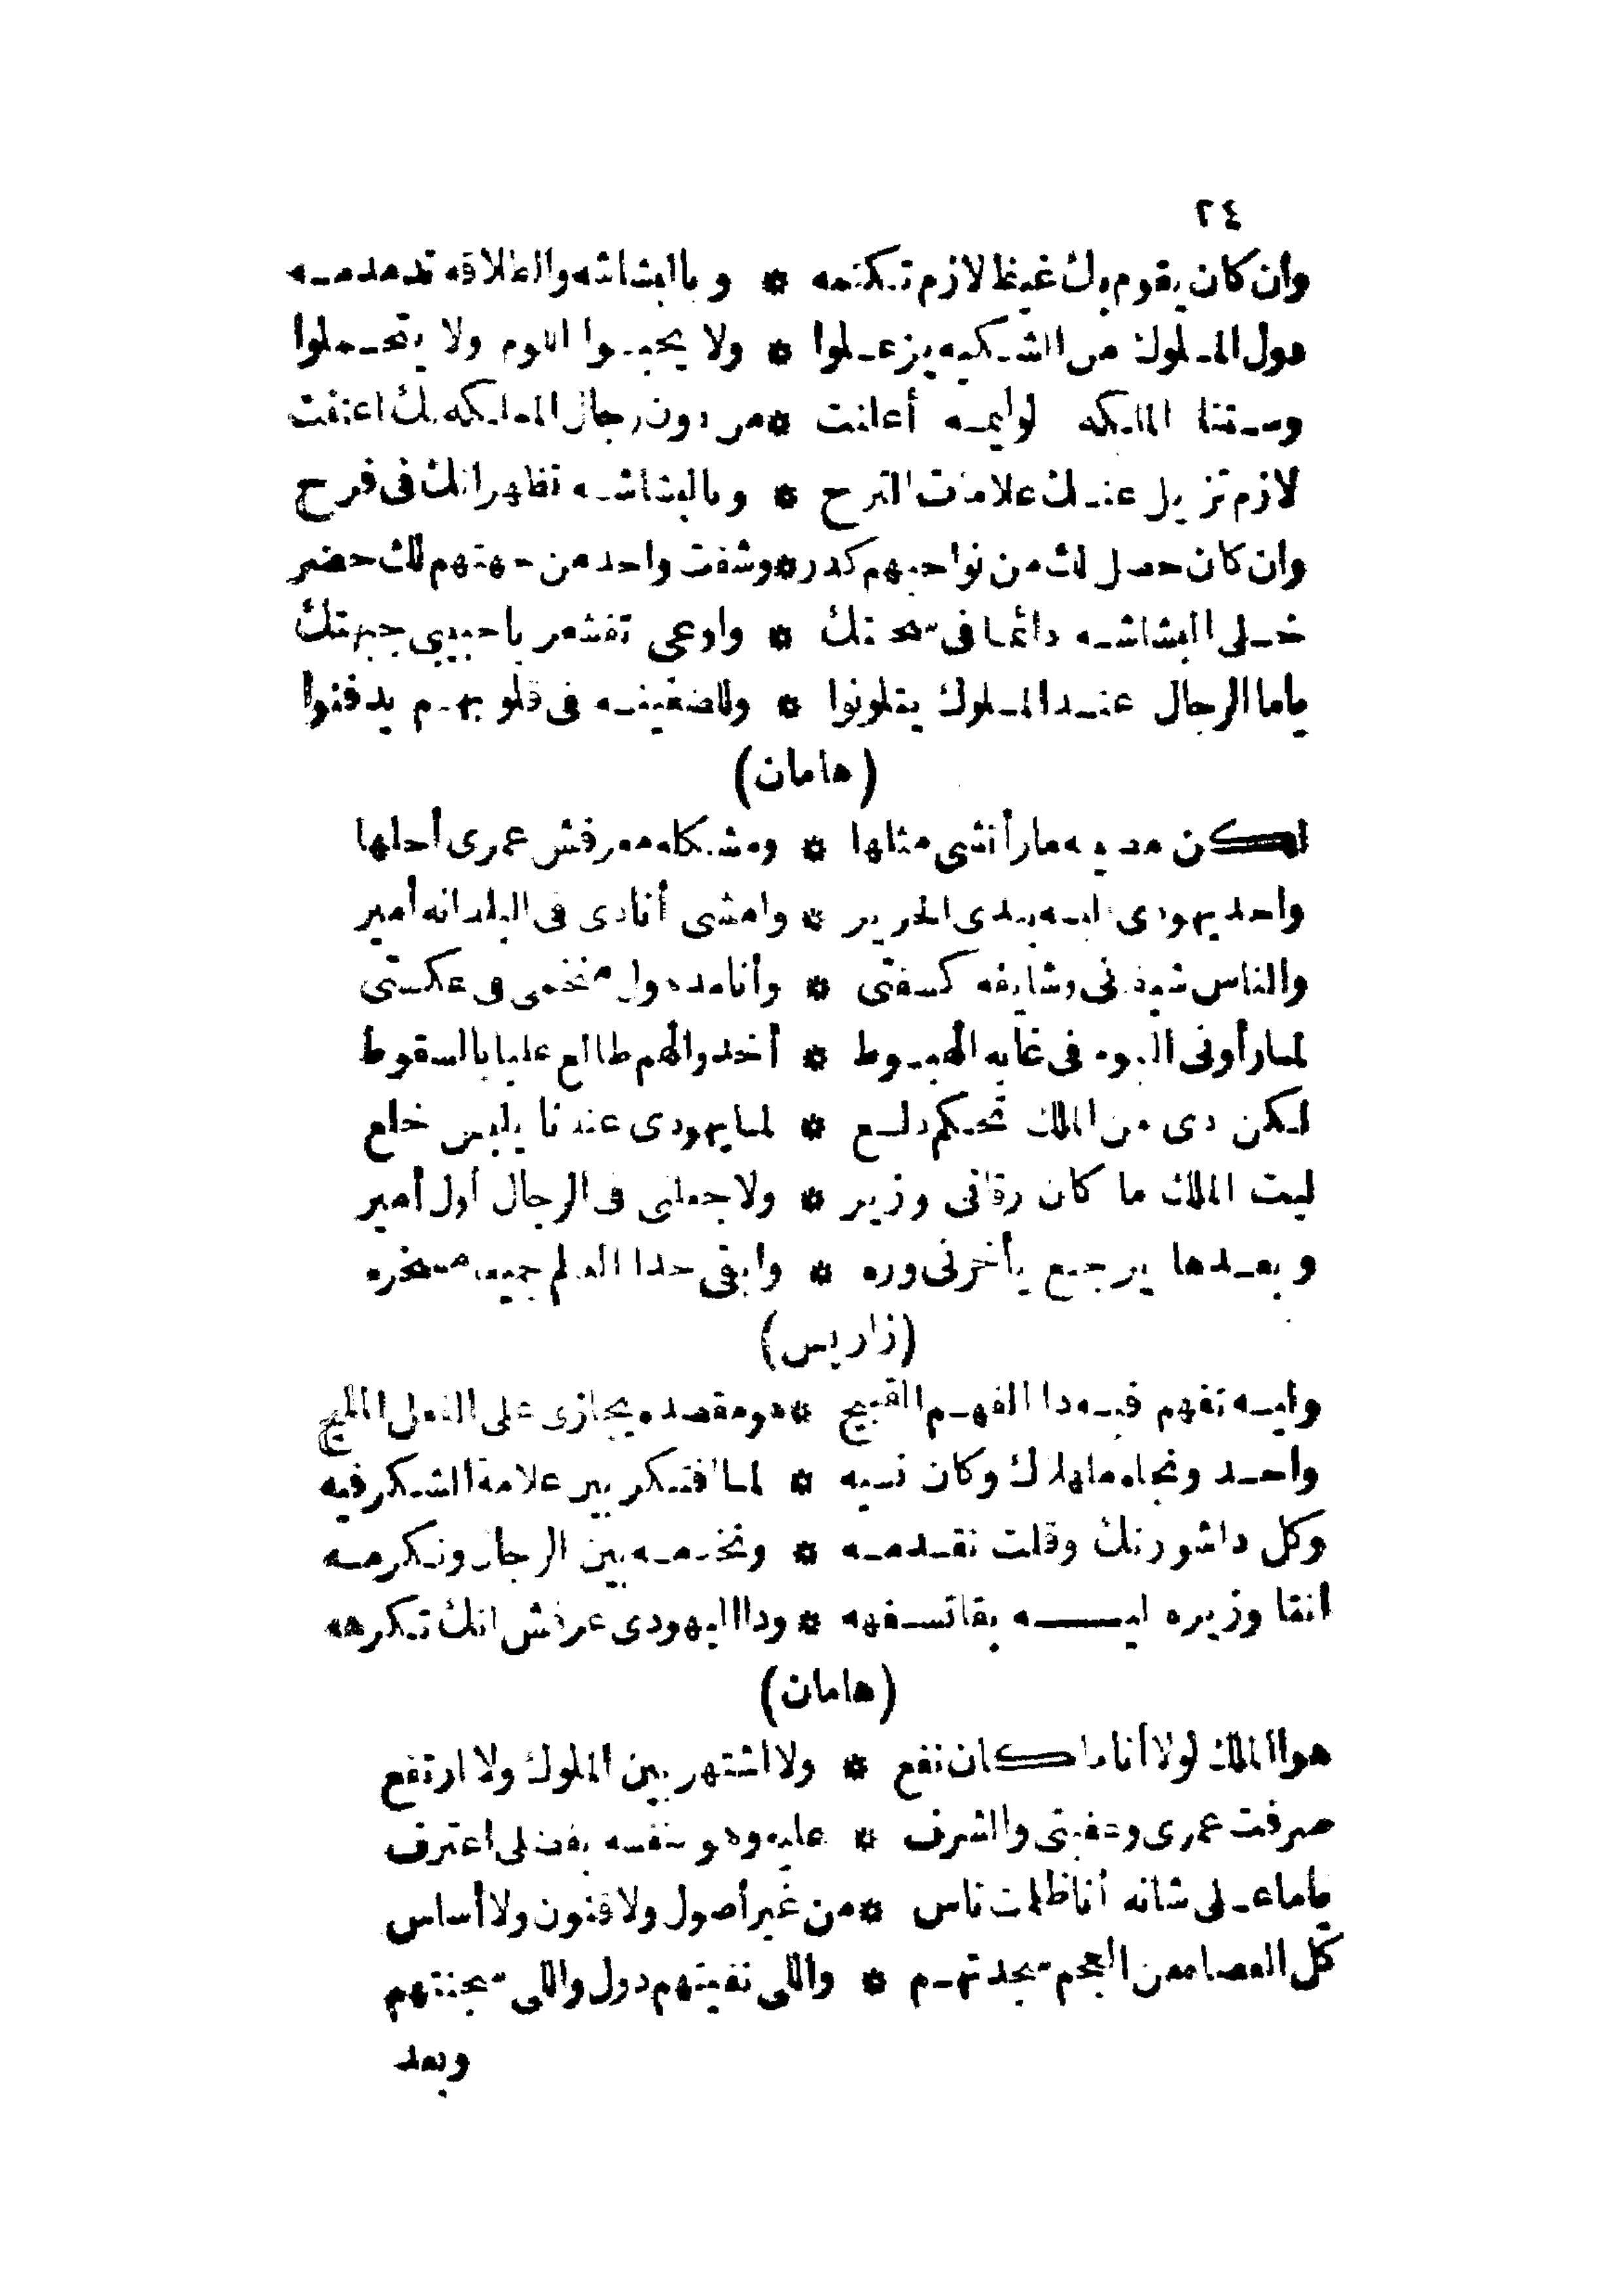 ٢٤
وان كان يقوم بك غيظا لازم تكتمه * وبالبشاشه والطلاقه تدمدمه
دول الملوك من الشكيه يزعلوا * ولا يحبوا اللوم ولا يتحملوا
وستنا الملكه لوليمه أعلنت * من دون رجال المملكه بك اعتنت
لازم تزيل عنك علامات الترح * وبالبشاشه تظهر انك فى فرح
وان كان حصل لك من نواحيهم كدر * وشفت واحد من جهتهم لك حضر
خلى البشاشه دائما فى سحنتك * واوعى تقشعر ياحبيبى جبهتك
ياما الرجال عند الملوك يتلونوا * والضغينه فى قلوبهم يدفنوا
(هامان)
لكن مصيبه مارأتشى مثلها * ومشكله معرفش عمرى أحلها
واحد يهودى البسه بيدى الحرير * وامشى أنادى فى البلد انه أمير
والناس تشوفنى وشايفه كسفتى * وأنا مدهول منخمى فى عكستى
لما رأونى اليوم فى غايه الهبوط * أخدوا لهم طالع عليا بالسقوط
لكن دى من الملك تحكم دلع * لما يهودى عندنا يلبس خلع
ليت الملك ما كان رقانى وزير * ولا جعلنى فى الرجال أول أمير
وبعدها يرجع يأخرنى وره * وابقى حدا العالم جميعا مسخره
(زاريس)
وليه تفهم فيه دا الفهم القبيح * هو مقصده يجازى على الفعل المليح
واحد ونجاه ما هلاك وكان نسيه * لما افتكر بين علامة الشكر فيه
وكل دا شورتك وقلت نقدمه * ونخدمه بين الرجال ونكرمه
انتا وزيره ليه بقا تسفهه * ودا اليهودى عرفش انك تكرهه
(هامان)
هوا الملك لولا أنا ما كان نفع * ولا اشتهر بين الملوك ولا ارتفع
صرفت عمرى وعفتى والشرف * عليه وهو بنفسه بفضلى اعترف
ياما على شانه أنا ظلمت ناس * من غير أصول ولا قنون ولا أساس
كل العصا من العجم سجدتهم * واللى نفيتهم دول واللى سجنتهم
وبعد